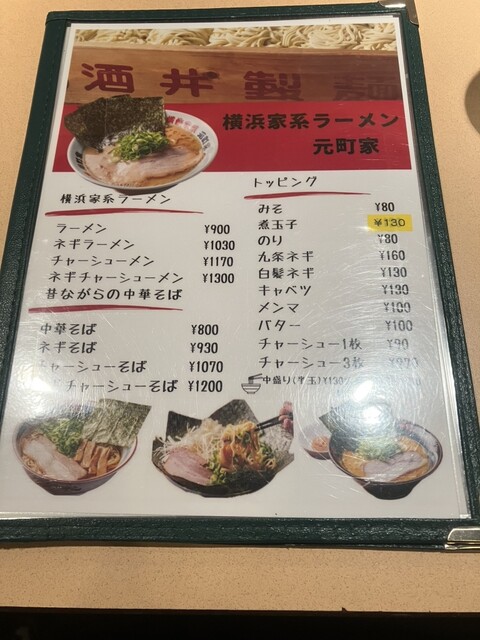 酒井製麺
横浜家系ラーメン
元町家
横浜家系ラーメン
ラーメン ¥900
ネギラーメン ¥1030
チャーシューメン ¥1170
ネギチャーシューメン ¥1300
昔ながらの中華そば
中華そば ¥800
ネギそば ¥930
チャーシューそば ¥1070
チャーシューそば ¥1200
トッピング
みそ ¥80
煮玉子 ¥130
のり ¥80
九条ネギ ¥160
白髪ネギ ¥130
キャベツ ¥130
メンマ ¥100
バター ¥100
チャーシュー1枚 ¥90
チャーシュー3枚
中盛り(半玉)¥130